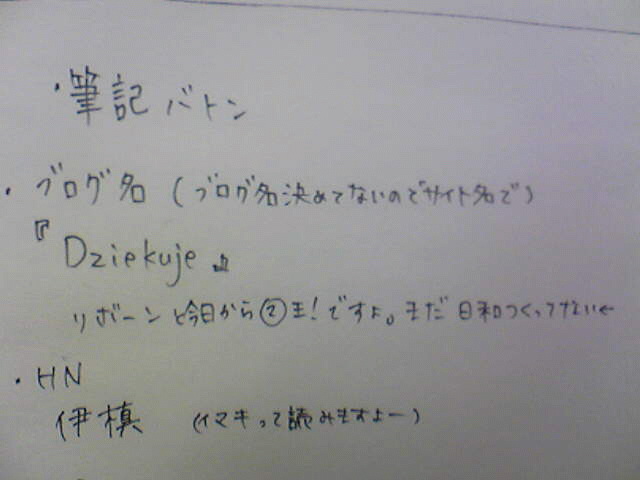 ・筆記バトン
・ブログ名(ブログ名決めてないのでサイト名で)
『Dziekuje』
リボーンと今日から②王!ですよ。まだ日和つくってない←
・HN
伊槙 (イマキって読みますよー)